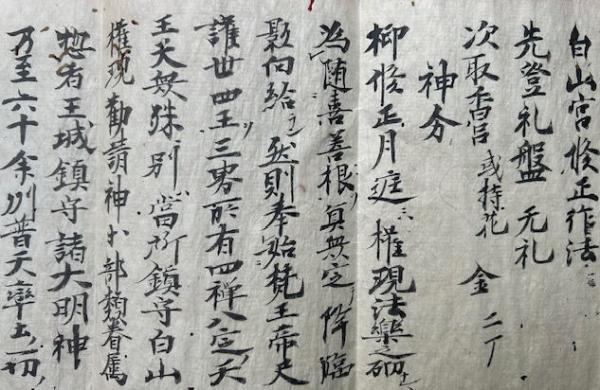 白山宮修正作法
先登礼盤 无礼
次取香呂 或持花 金二丁
神分
抑修正月遊ニ権現法樂之砌ニハ
為随喜善根ノ冥無定降臨
影向給ヘ 然則奉始梵王帝尺
護世四王三界所有四禅八定ノ天
王天殊別ハ當所鎮守白山
権現勧請神分部類眷属
惣者王城鎮守諸大明神
乃至六十余州普天率土一切